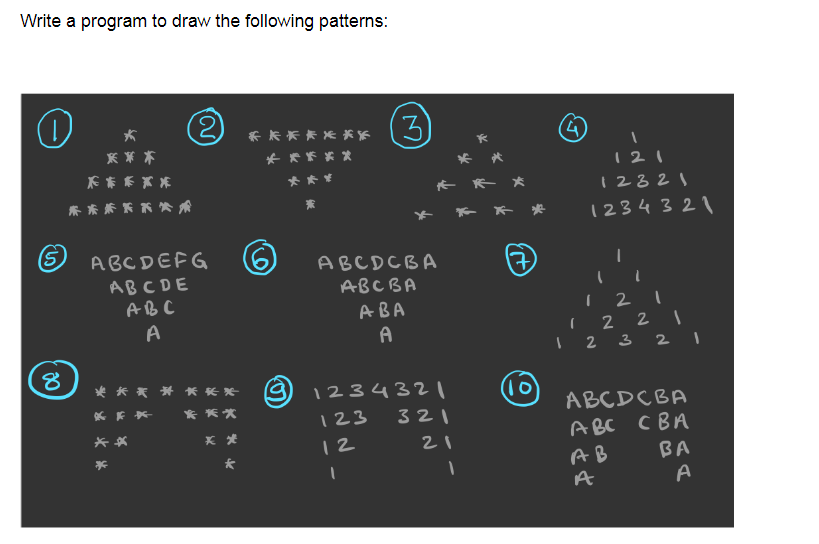 Write a program to draw the following patterns:
1
*
* * *
* * * * *
* * * * * * *
2
* * * * * * *
* * * * *
* * *
*
3
*
* *
* * *
* * * *
4
1
1 2 1
1 2 3 2 1
1 2 3 4 3 2 1
5
A B C D E F G
A B C D E
A B C
A
6
A B C D C B A
A B C B A
A B A
A
7
1
1 1
1 2 1
1 2 2 1
1 2 3 2 1
8
* * * * * * *
* * * * * *
* * * *
* *
9
1 2 3 4 3 2 1
1 2 3 3 2 1
1 2 2 1
1 1
10
A B C D C B A
A B C C B A
A B B A
A A